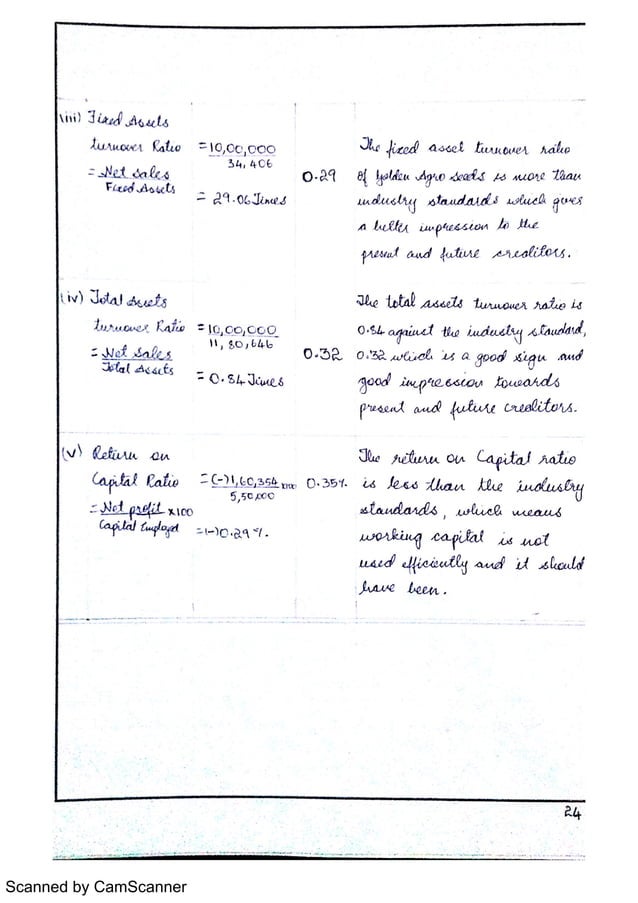 (iii) Fixed Assets
turnover Ratio
= Net Sales
Fixed Assets
= 10,00,000
34,406
= 29.06 Times
0.29
The fixed asset turnover ratio
of Golden Agro seeds is more than
industry standards which gives
a better impression to the
present and future creditors.
(iv) Total Assets
turnover Ratio
= Net Sales
Total Assets
= 10,00,000
11,80,646
= 0.84 Times
0.32
The total assets turnover ratio is
0.84 against the industry standard,
0.32 which is a good sign and
good impression towards
present and future creditors.
(v) Return on
Capital Ratio
= Net profit x100
Capital Employed
= (-)1,60,354 x100
5,50,000
= (-)0.29%.
0.35%
The return on Capital ratio
is less than the industry
standards, which means
working capital is not
used efficiently and it should
have been.
24
Scanned by CamScanner